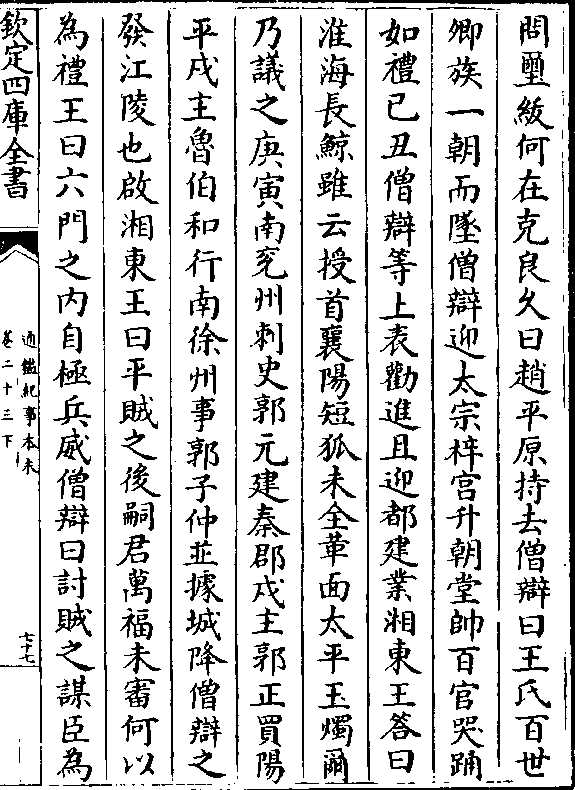 問璽紱何在克良久曰趙平原持去僧辯曰王氏百世
卿族一朝而墜僧辯迎太宗梓宫升朝堂帥百官哭踊
如禮已丑僧辯等上表勸進且迎都建業湘東王答曰
淮海長鯨雖云授首襄陽短狐未全革面太平玉燭爾
乃議之庚寅南兖州刺史郭元建秦郡戍主郭正買陽
平戍主魯伯和行南徐州事郭子仲並據城降僧辯之
發江陵也啟湘東王曰平賊之後嗣君萬福未審何以
為禮王曰六門之内自極兵威僧辯曰討賊之謀臣為
欽定四庫全書
通鑑紀事本末
卷二十三下
七十七